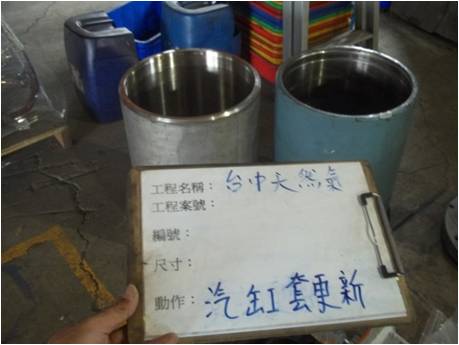 工程名稱：台中天然氣
工程案號：
編號：
尺寸：
動作：汽缸套更新